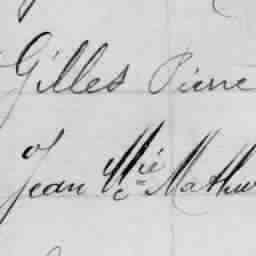 Gilles Pierre
Jean M^ie Mathu